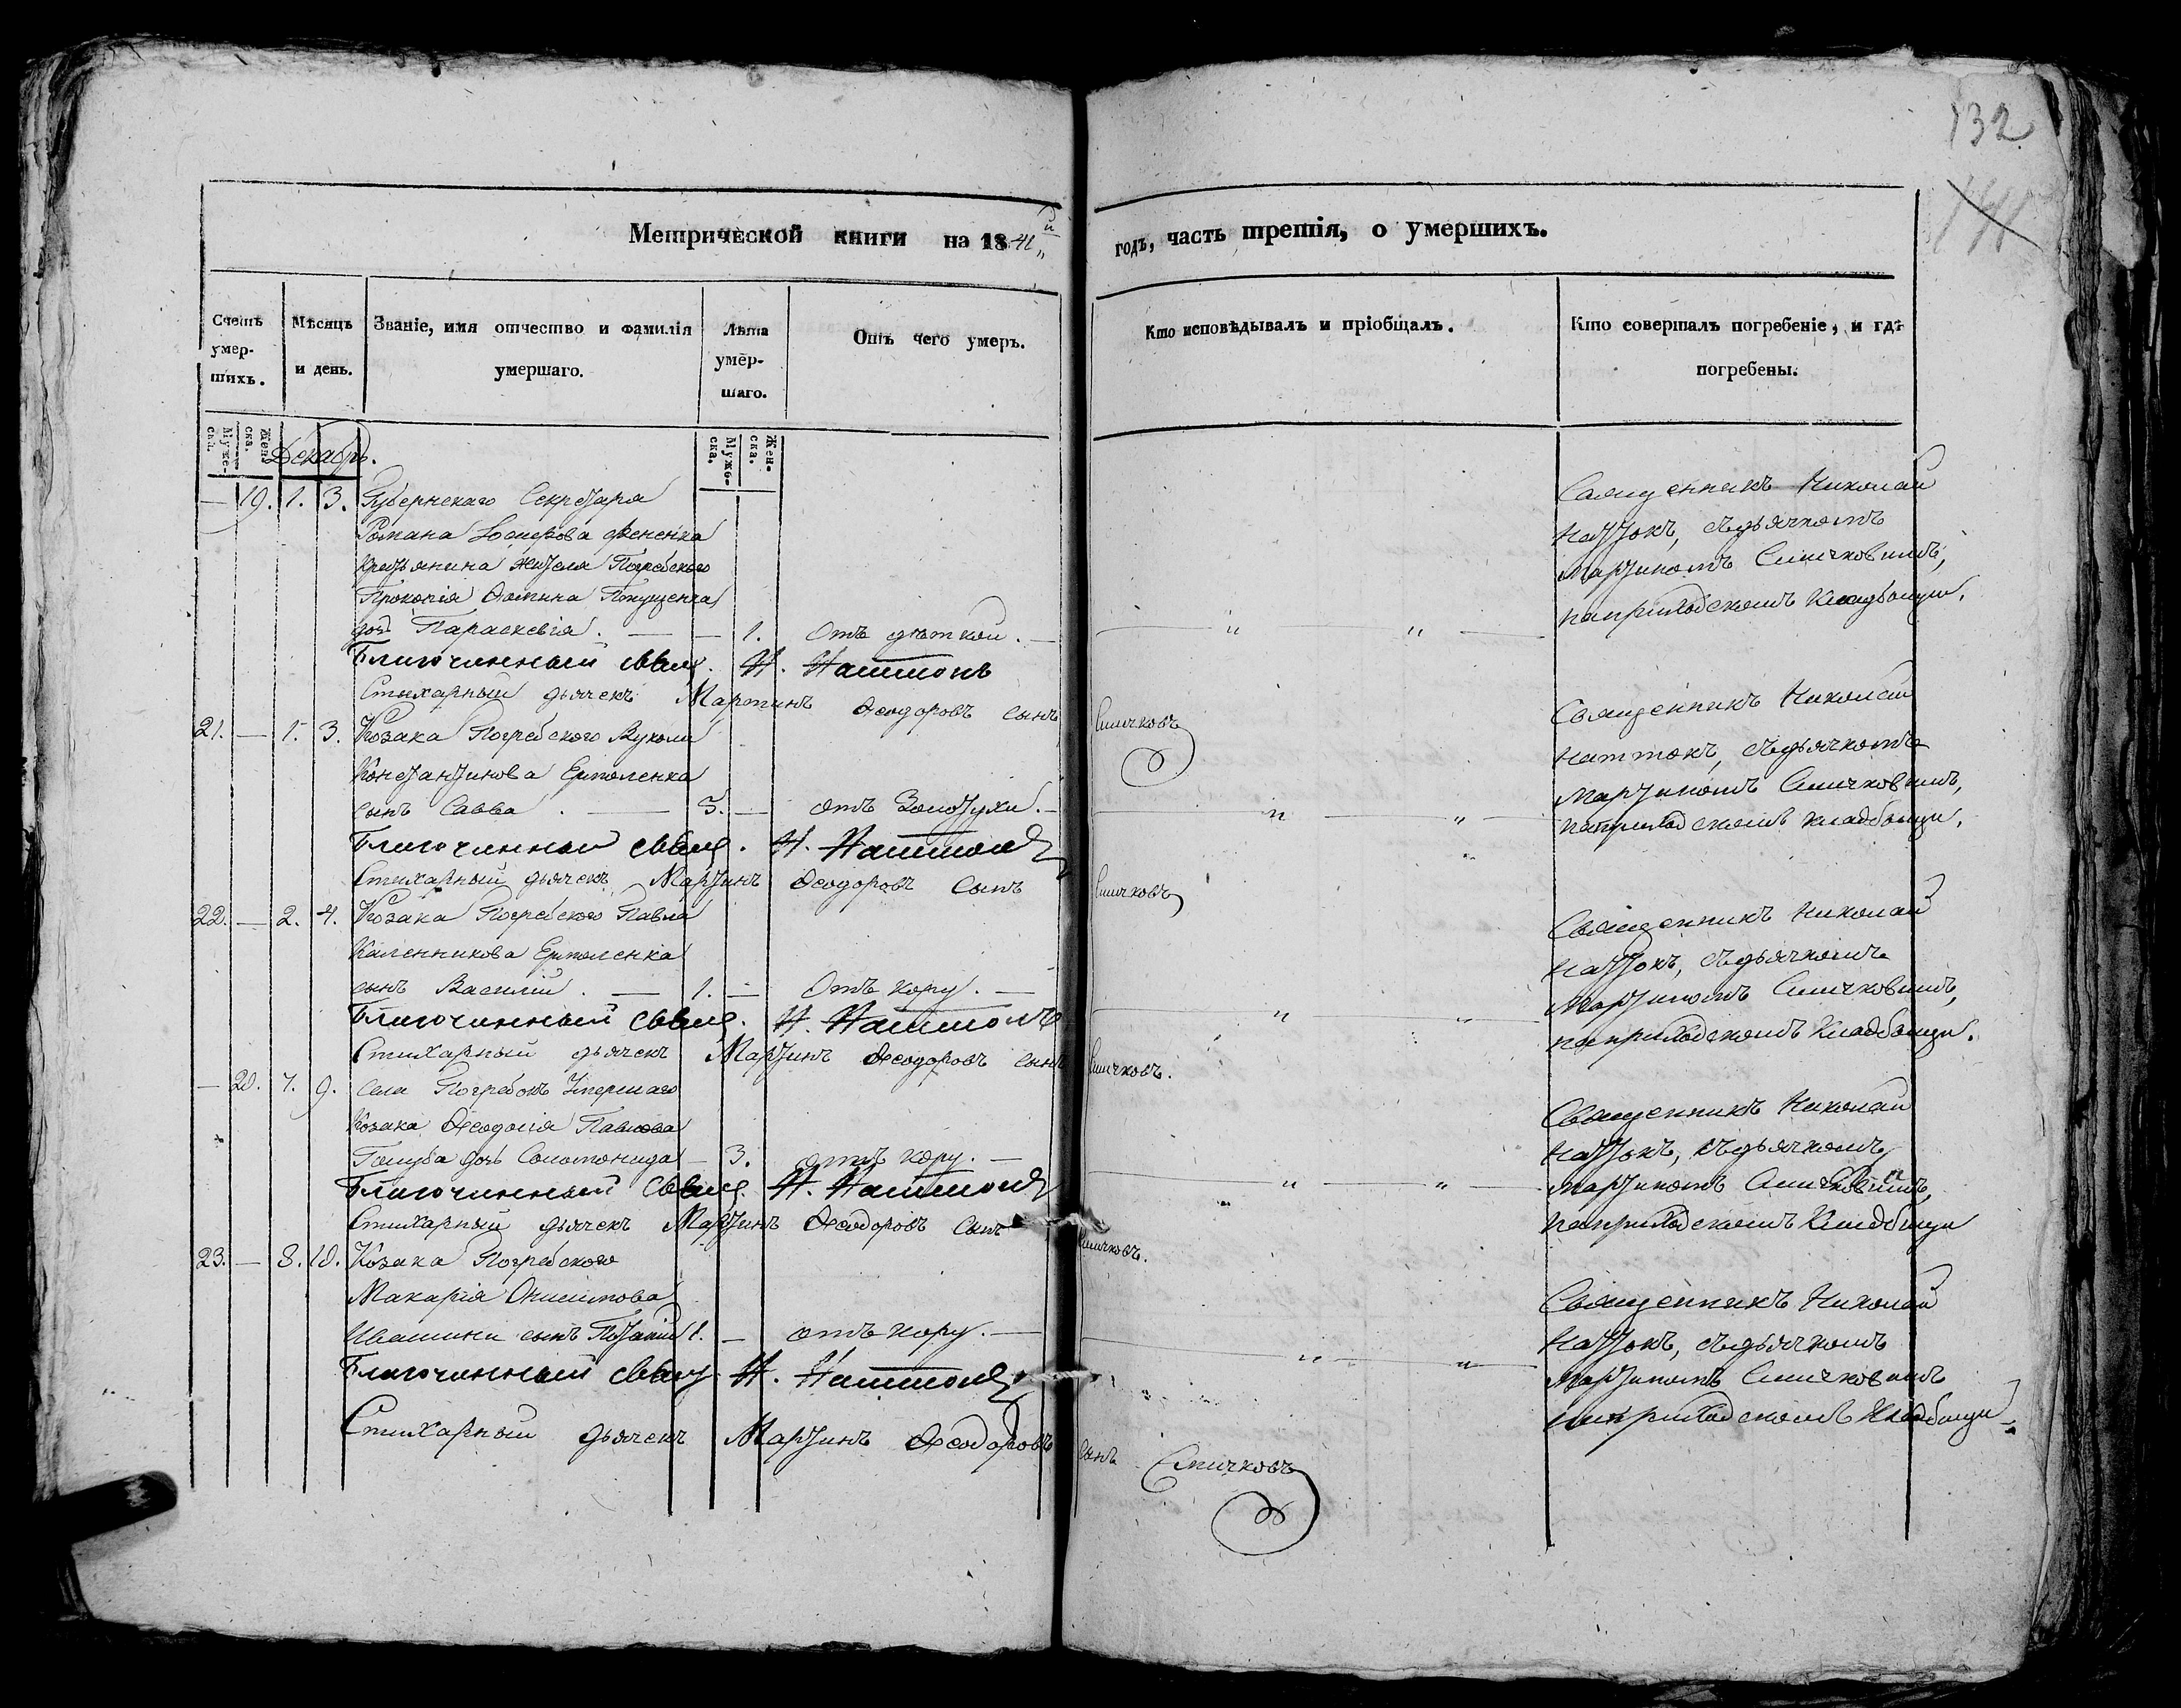 132
Метрической книги на 1841й годъ, часть третія, о умершихъ.
Счетъ умер-шихъ.
Мѣсяцъ и день.
Званіе, имя отчество и фамилія умершаго.
Лѣта умер-шаго.
Отъ чего умеръ.
Кто исповѣдывалъ и пріобщалъ.
Кто совершалъ погребеніе, и гдѣ погребены.
Муже-ска. Жен-ска.
Муже-ска. Жен-ска.
Декабрь.
— 19. 1. 3. Губернскаго Секретаря
Романа Фененка
крестьянина жителя Погребскаго
Прокопія Фомина
дочь Параскевія. — — 1. отъ — " — " —
Священникъ Николай
Наттокъ, съ дьячкомъ
Мартиномъ Смичковымъ,
на приходскомъ кладбищи.
Благочинный свящ. Н. Наттокъ
Стихарный дьячекъ Мартинъ Феодоровъ сынъ Смичковъ
21. — 1. 3. Козака Погребского Вукола
Константинова Ермоленка
сынъ Савва. — 3. — отъ Золотухи. — " — " —
Священникъ Николай
Наттокъ, съ дьячкомъ
Мартиномъ Смичковымъ,
на приходскомъ кладбищи.
Благочинный свящ. Н. Наттокъ
Стихарный дьячекъ Мартинъ Феодоровъ сынъ Смичковъ
22. — 2. 4. Козака Погребского Павла
Каленникова Ермоленка
сынъ Василій. — 1. — Отъ кору. — " — " —
Священникъ Николай
Наттокъ, съ дьячкомъ
Мартиномъ Смичковымъ,
на приходскомъ кладбищи.
Благочинный свящ. Н. Наттокъ
Стихарный дьячекъ Мартинъ Феодоровъ сынъ Смичковъ.
— 20. 7. 9. Села Погребокъ Умершаго
Козака Феодосія Павлова
Голуба дочь Соломонида — 3. отъ кору. — " — " —
Священникъ Николай
Наттокъ, съ дьячкомъ
Мартиномъ Смичковымъ,
на приходскомъ кладбищи
Благочинный свящ. Н. Наттокъ
Стихарный дьячекъ Мартинъ Феодоровъ сынъ Смичковъ.
23. — 8. 10. Козака Погребского
Макарія Онисимова
Ивашини сынъ Потапій 1. — отъ кору. — " — " —
Священникъ Николай
Наттокъ, съ дьячкомъ
Мартиномъ Смичковымъ
на приходскомъ кладбищи.
Благочинный свящ. Н. Наттокъ
Стихарный дьячекъ Мартинъ Феодоровъ сынъ Смичковъ